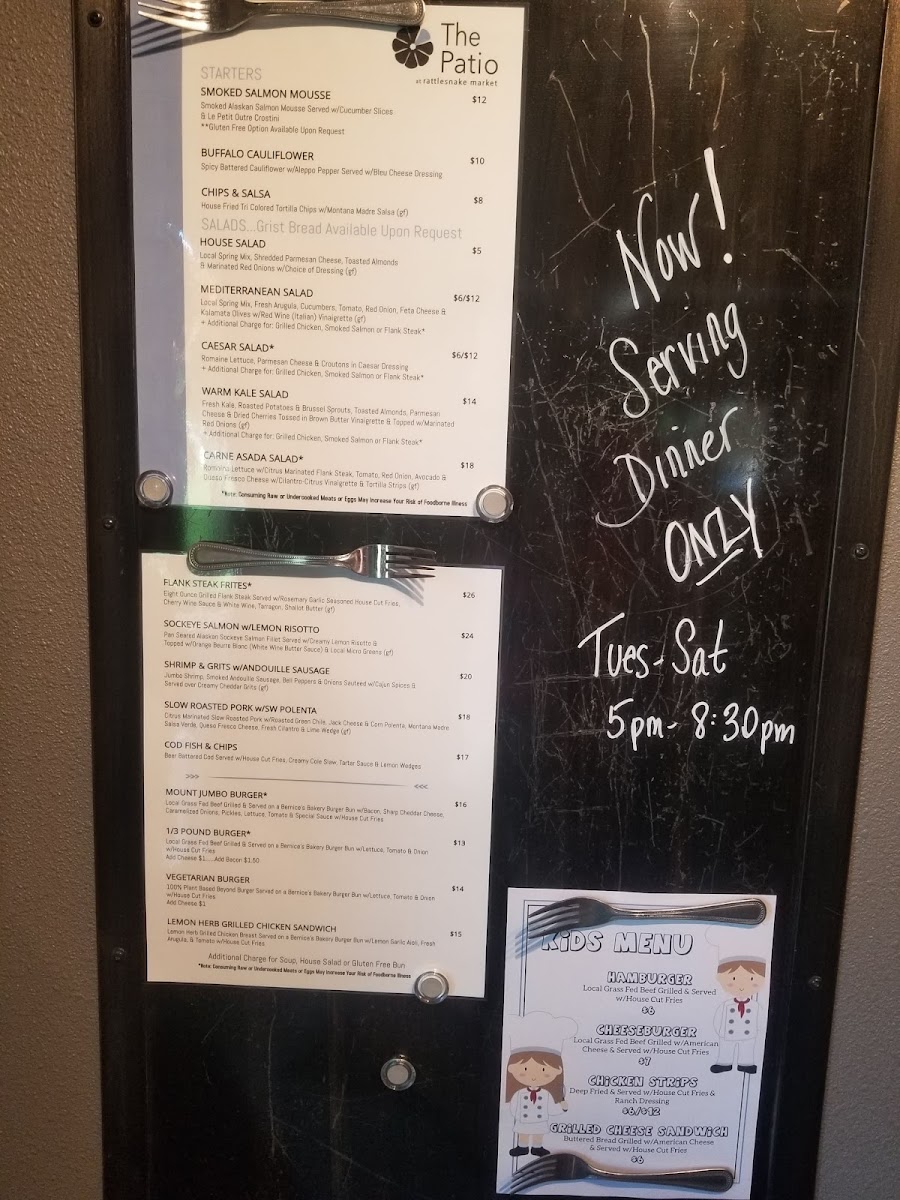 The
Patio
at rattlesnake market
STARTERS
SMOKED SALMON MOUSSE $12
Smoked Alaskan Salmon Mousse Served w/Cucumber Slices
& Le Petit Outre Crostini
**Gluten Free Option Available Upon Request
BUFFALO CAULIFLOWER $10
Spicy Battered Cauliflower w/Aleppo Pepper Served w/Bleu Cheese Dressing
CHIPS & SALSA $8
House Fried Tri Colored Tortilla Chips w/Montana Madre Salsa (gf)
SALADS...Grist Bread Available Upon Request
HOUSE SALAD $5
Local Spring Mix, Shredded Parmesan Cheese, Toasted Almonds
& Marinated Red Onions w/Choice of Dressing (gf)
MEDITERRANEAN SALAD $6/$12
Local Spring Mix, Fresh Arugula, Cucumbers, Tomato, Red Onion, Feta Cheese &
Kalamata Olives w/Red Wine (Italian) Vinaigrette (gf)
+ Additional Charge for: Grilled Chicken, Smoked Salmon or Flank Steak*
CAESAR SALAD* $6/$12
Romaine Lettuce, Parmesan Cheese & Croutons in Caesar Dressing
+ Additional Charge for: Grilled Chicken, Smoked Salmon or Flank Steak*
WARM KALE SALAD $14
Fresh Kale, Roasted Potatoes & Brussel Sprouts, Toasted Almonds, Parmesan
Cheese & Dried Cherries Tossed in Brown Butter Vinaigrette & Topped w/Marinated
Red Onions (gf)
+ Additional Charge for: Grilled Chicken, Smoked Salmon or Flank Steak*
CARNE ASADA SALAD* $18
Romaine Lettuce w/Citrus Marinated Flank Steak, Tomato, Red Onion, Avocado &
Queso Fresco Cheese w/Cilantro-Citrus Vinaigrette & Tortilla Strips (gf)
*Note: Consuming Raw or Undercooked Meats or Eggs May Increase Your Risk of Foodborne Illness
FLANK STEAK FRITES* $26
Eight Ounce Grilled Flank Steak Served w/Rosemary Garlic Seasoned House Cut Fries,
Cherry Wine Sauce & White Wine, Tarragon, Shallot Butter (gf)
SOCKEYE SALMON w/LEMON RISOTTO $24
Pan Seared Alaskan Sockeye Salmon Fillet Served w/Creamy Lemon Risotto &
Topped w/Orange Beurre Blanc (White Wine Butter Sauce) & Local Micro Greens (gf)
SHRIMP & GRITS w/ANDOUILLE SAUSAGE $20
Jumbo Shrimp, Smoked Andouille Sausage, Bell Peppers & Onions Sauteed w/Cajun Spices &
Served over Creamy Cheddar Grits (gf)
SLOW ROASTED PORK w/SW POLENTA $18
Citrus Marinated Slow Roasted Pork w/Roasted Green Chile, Jack Cheese & Corn Polenta, Montana Madre
Salsa Verde, Queso Fresco Cheese, Fresh Cilantro & Lime Wedge (gf)
COD FISH & CHIPS $17
Beer Battered Cod Served w/House Cut Fries, Creamy Cole Slaw, Tarter Sauce & Lemon Wedges
>>> <<<
MOUNT JUMBO BURGER* $16
Local Grass Fed Beef Grilled & Served on a Bernice's Bakery Burger Bun w/Bacon, Sharp Cheddar Cheese,
Caramelized Onions, Pickles, Lettuce, Tomato & Special Sauce w/House Cut Fries
1/3 POUND BURGER* $13
Local Grass Fed Beef Grilled & Served on a Bernice's Bakery Burger Bun w/Lettuce, Tomato & Onion
w/House Cut Fries
Add Cheese $1.....Add Bacon $1.50
VEGETARIAN BURGER $14
100% Plant Based Beyond Burger Served on a Bernice's Bakery Burger Bun w/Lettuce, Tomato & Onion
w/House Cut Fries
Add Cheese $1
LEMON HERB GRILLED CHICKEN SANDWICH $15
Lemon Herb Grilled Chicken Breast Served on a Bernice's Bakery Burger Bun w/Lemon Garlic Aioli, Fresh
Arugula, & Tomato w/House Cut Fries
Additional Charge for Soup, House Salad or Gluten Free Bun
*Note: Consuming Raw or Undercooked Meats or Eggs May Increase Your Risk of Foodborne Illness
Now!
Serving
Dinner
ONLY
Tues-Sat
5pm- 8:30pm
KiDS MENU
HAMBURGER
Local Grass Fed Beef Grilled & Served
w/House Cut Fries
$6
CHEESEBURGER
Local Grass Fed Beef Grilled w/American
Cheese & Served w/House Cut Fries
$7
CHiCKEN STRiPS
Deep Fried & Served w/House Cut Fries &
Ranch Dressing
$6/$12
GRiLLED CHEESE SANDWiCH
Buttered Bread Grilled w/American Cheese
& Served w/House Cut Fries
$6